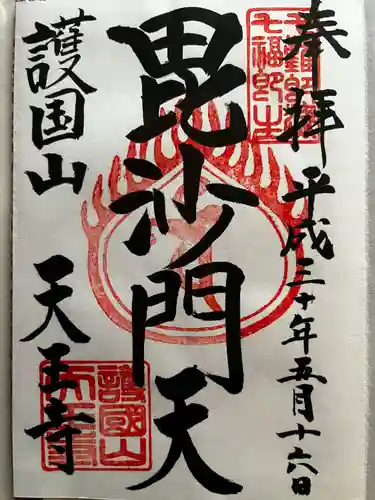 奉拝
平成三十年五月十六日
毘沙門天
護国山
天王寺
護國山